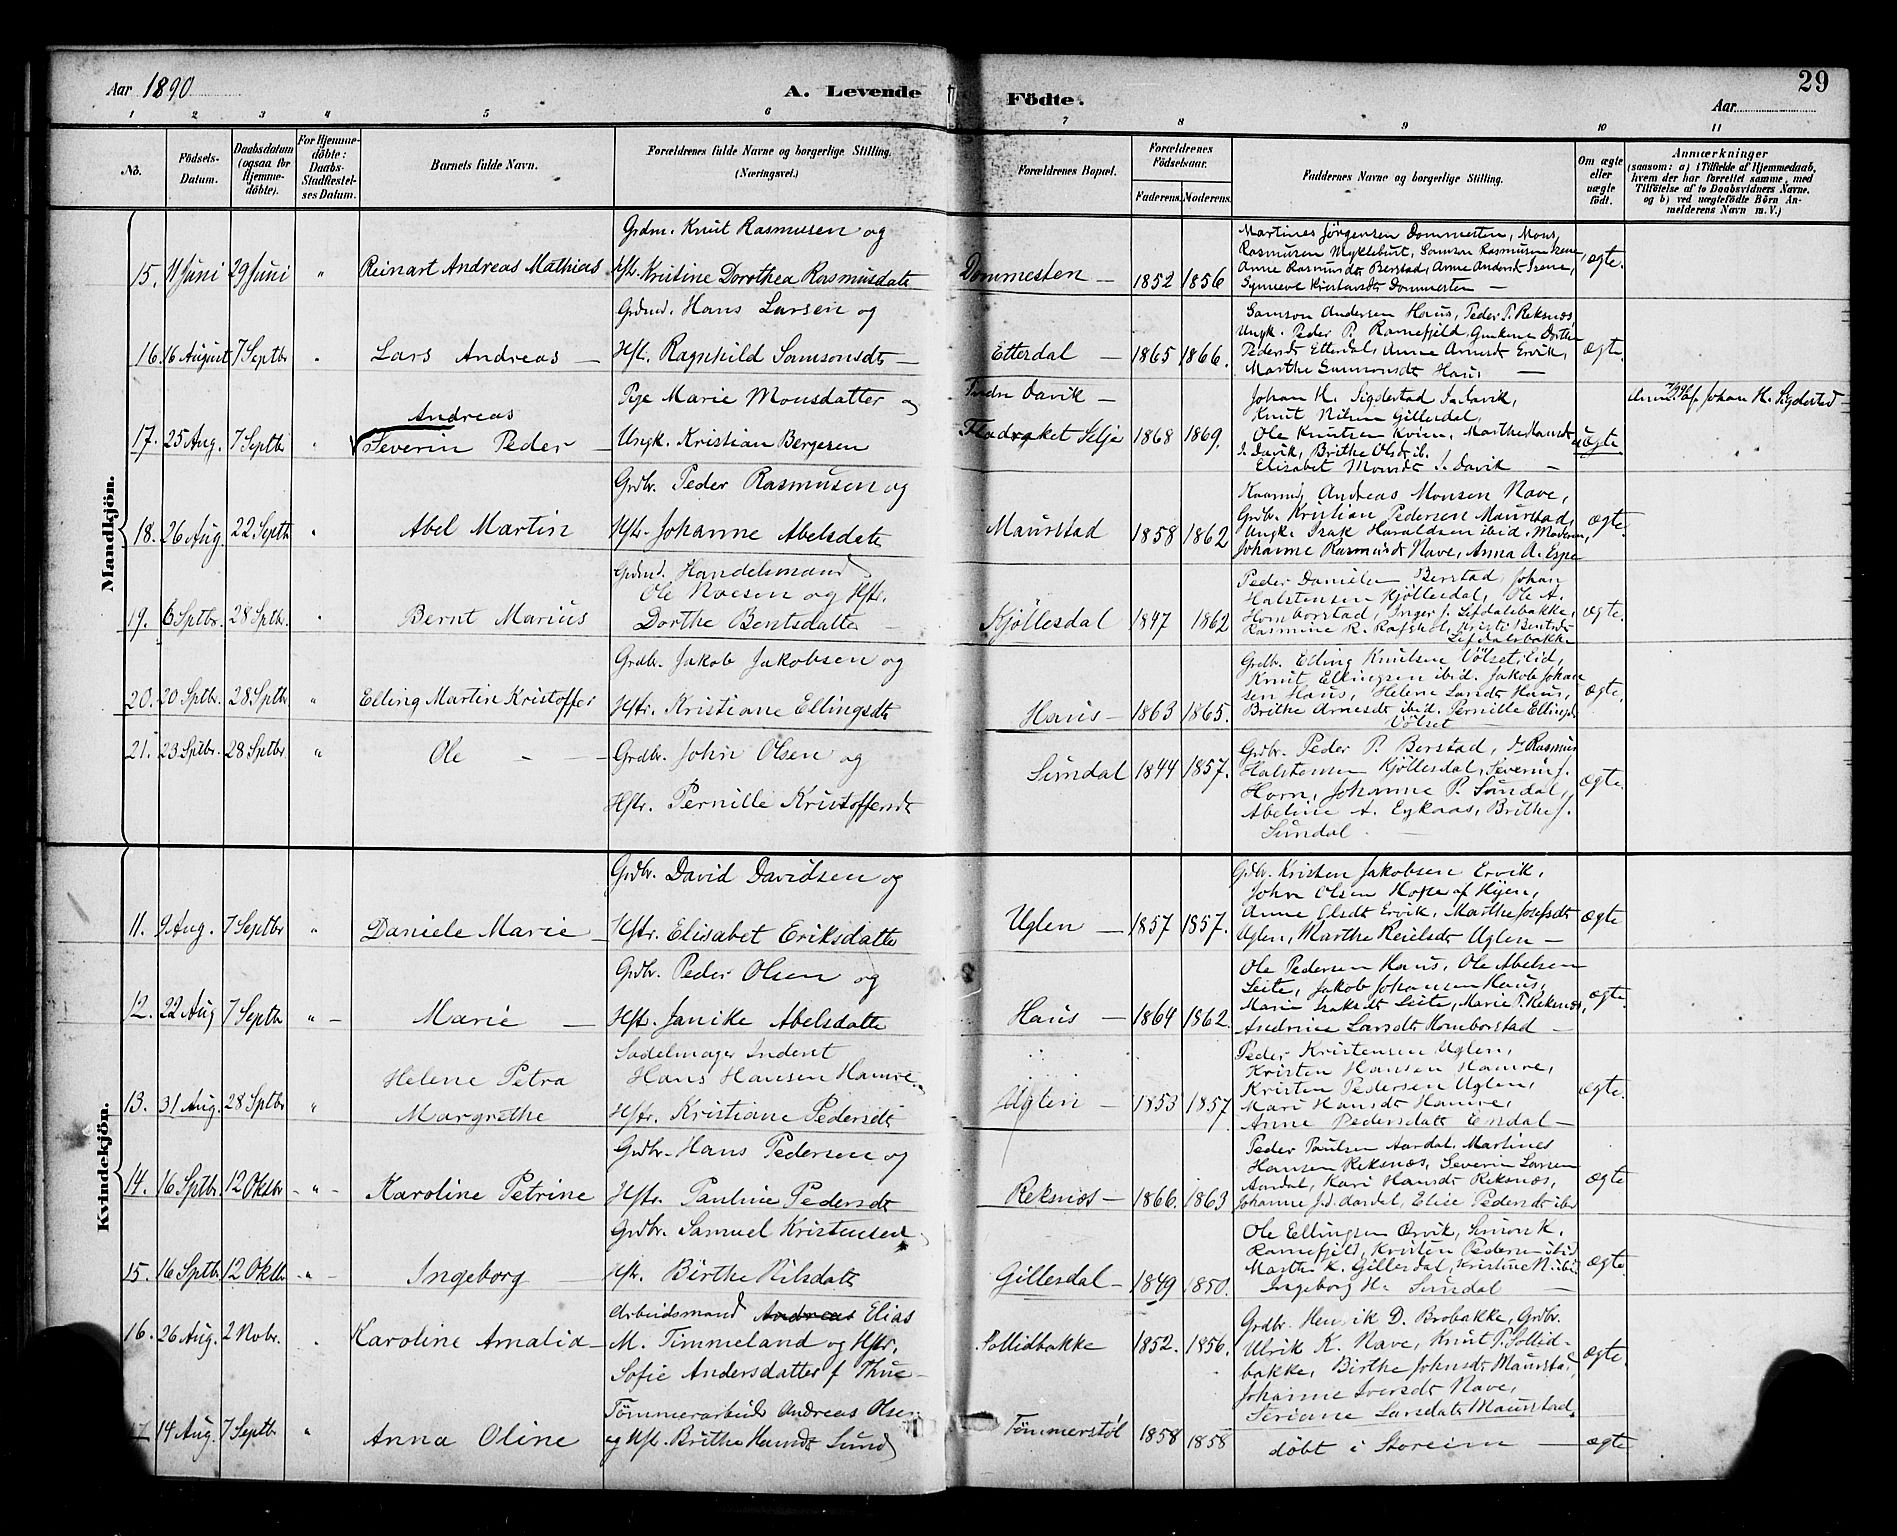 Aar 1890
A. Levende Födte.
29
Aar
1 2 3 4 5 6 7 8 9 10 11
No.
Födsels-Datum.
Daabsdatum (ogsaa for Hjemme-döbte).
For Hjemme-döbte: Daabs-Stadfæstel-ses Datum.
Barnets fulde Navn.
Forældrenes fulde Navne og borgerlige Stilling.
(Næringsvei.)
Forældrenes Bopæl.
Forældrenes Födselsaar.
Faderens. Moderens.
Faddernes Navne og borgerlige Stilling.
Om ægte eller uægte födt.
Anmærkninger
(saasom: a) i Tilfælde af Hjemmedaab, hvem der har forrettet samme, med Tilföielse af to Daabsvidners Navne, og b) ved uægtefödte Börn An-melderens Navn m. V.)
Mandkjön.
15. 11 Juni 29 Juni " Reinart Andreas Mathias
Grdm. Knut Rasmusen og
Hst. Kristine Dorothea Rasmusdatr
Dommesten — 1852 1856
Martines Jørgensen Dommesten, Mons
Rasmusen Myklebust, Samson Rasmusen
Anne Rasmusdt Berstad, Anne Andersdt
Synneve Kristiansdt Dommesten —
ægte.
16. 16 August 7 Septbr " Lars Andreas —
Grdmd. Hans Larsen og
Hst. Ragnhild Samsonsdtr —
Etterdal — 1865 1866.
Samson Andersen Haus, Peder P. Reknes,
Ungk. Peder P. Ramefjeld, Dorthe
Pedersdt Etterdal, Anne Arnesdt Ervik,
Marthe Samsonsdt Haus —
ægte.
17. 25 Aug. 7 Septbr " Andreas
Severin Peder —
Pige Marie Monsdatter og
Ungk. Kristian Bergesen
Indre Davik —
Selje 1868 1869.
Johan H. Sigdestad
Knut Nilsen Gillesdal,
Ole Knutsen Kvien, Marthe Hansdt
I. Davik, Brithe Olsdt ib.
Elisabet Monsdt I. Davik —
uægte
Johan H. Sigdestad
18. 26 Aug. 22 Septb " Abel Martin
Grdbr. Peder Rasmusen og
Hstr. Johanne Abelsdatr
Maurstad 1858 1862
Andreas Monsen Nave,
Grdbr. Kristian Pedersen Maurstad,
Ungk. Isak Haraldsen ibid, Moderen,
Johanne Rasmusdt Nave, Anna A. Espe
ægte.
19. 6 Sptbr. 28 Sptb. " Bernt Marius
Grdmd. Handelsmand
Ole Noesen og Hstr.
Dorthe Bentsdatter —
Kjöllesdal 1847 1862
Peder Danielsen Berstad, Johan
Halstensen Kjöllesdal, Ole A.
Homborstad, Inger J. Lefdalsbakke,
Rasmine R. Kristi Berntsdt
Lefdalsbakke
ægte.
20. 20 Sptbr. 28 Sptb " Elling Martin Kristoffer
Grdbr. Jakob Jakobsen og
Hstr. Kristiane Ellingsdtr
Haus — 1863 1865.
Grdbr. Elling Knutsen Völsetlid,
Knut Ellingsen ibid. Jakob Johan
sen Haus, Helene Larsdt Haus,
Brithe Arnesdt ibid. Pernille Ellingsdt
Völset —
ægte.
21. 23 Sptbr. 28 Sptbr " Ole —
Grdbr. John Olsen og
Hstr. Pernille Kristoffersdt
Sundal 1844 1857.
Grdbr. Peder P. Berstad, Rasmus
Halstensen Kjöllesdal, Severin J.
Horn, Johanne P. Sundal,
Abeline A. Eykaas, Brithe J.
Sundal.
ægte.
Kvindekjön.
11. 9 Aug. 7 Septbr " Daniele Marie —
Grdbr. David Davidsen og
Hstr. Elisabet Eriksdatte
Uglen — 1857 1857.
Grdbr. Kristen Jakobsen Ervik,
John Olsen Hope af Hyen,
Anne Olsdt Ervik, Marthe Josefsdt
Uglen, Marthe Uglen —
ægte
12. 22 Aug 7 Septbr " — Marie —
Grdbr. Peder Olsen og
Hst. Janike Abelsdatte
Haus — 1864 1862.
Ole Pedersen Haus, Ole Abelsen
Leite, Jakob Johansen Haus,
Marie Isaksdt Leite, Marie P. Reksnæs,
Andrine Larsdt Homborstad —
ægte.
13. 31 Aug. 28 Sptbr " Helene Petra
Margrethe
Sadelmager Inderst
Hans Hansen Hamre
Hstr. Kristiane Pedersdt
Uglen — 1853 1857
Peder Kristensen Uglen,
Kristen Hansen Hamre,
Kristen Pedersen Uglen,
Mari Hansdt Hamre,
Anne Pedersdatr Endal —
ægte.
14. 16 Sptbr. 12 Oktbr - " - Karoline Petrine
Grdbr. Hans Pedersen og
Hstr. Pauline Pedersdt
Reksnæs — 1866. 1863
Peder Paulsen Aardal, Martines
Hansen Reksnæs, Severin Larsen
Aardal, Kari Hansdt Reksnæs,
Johanne J.d. Aardal, Elise Pedersdt ibid
ægte
15. 16 Sptb. 12 Oktb - " - Ingeborg
Grdbr. Samuel Kristensen
Hst. Birthe Nilsdatr
Gillesdal — 1849 1850.
Ole Ellingsen Ervik, Simon K.
Ramefjeld, Kristen Pedersen ibid
Marthe K. Gillesdal, Kristine N. ibi.
Ingeborg H. Sundal —
ægte
16. 26 Aug. 2 Nobr. " Karoline Amalia —
Arbeidsmand Andreas Elias
M. Timmeland og Hstr.
Sofie Andersdatter f Thue —
Sollidbakke 1852. 1856.
Grdbr. Henrik D. Brobakke, Grdbr.
Ulrik K. Nave, Knut P. Sollid-
bakke, Birthe Johnsdt Maurstad,
Johanne Iversdt Nave,
Seriane Larsdatr Maurstad.
ægte.
17 14 Aug. 7 Septb " Anna Oline
Tömmerarbeid. Andreas Olsen
og Hst. Brithe Hansdt Lund
Tömmerstöl 1858 1858
döbt i Storeim —
ægte